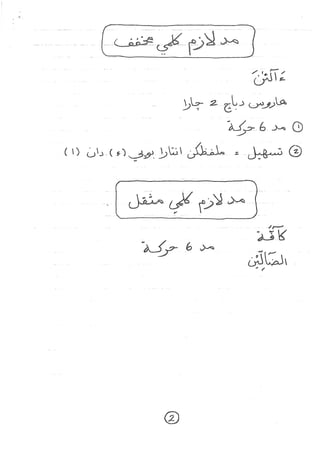 مد لازم كلمي مخفف
ءَآلْئٰنَ
هاروس دباچ 2 چارا
① مد 6 حركة
② تسهيل = ملفظكن انتارا بوڽي (ء) دان (ا)
مد لازم كلمي مثقل
كَآفَّة
مد 6 حركة
الضَآلِّيْن
②